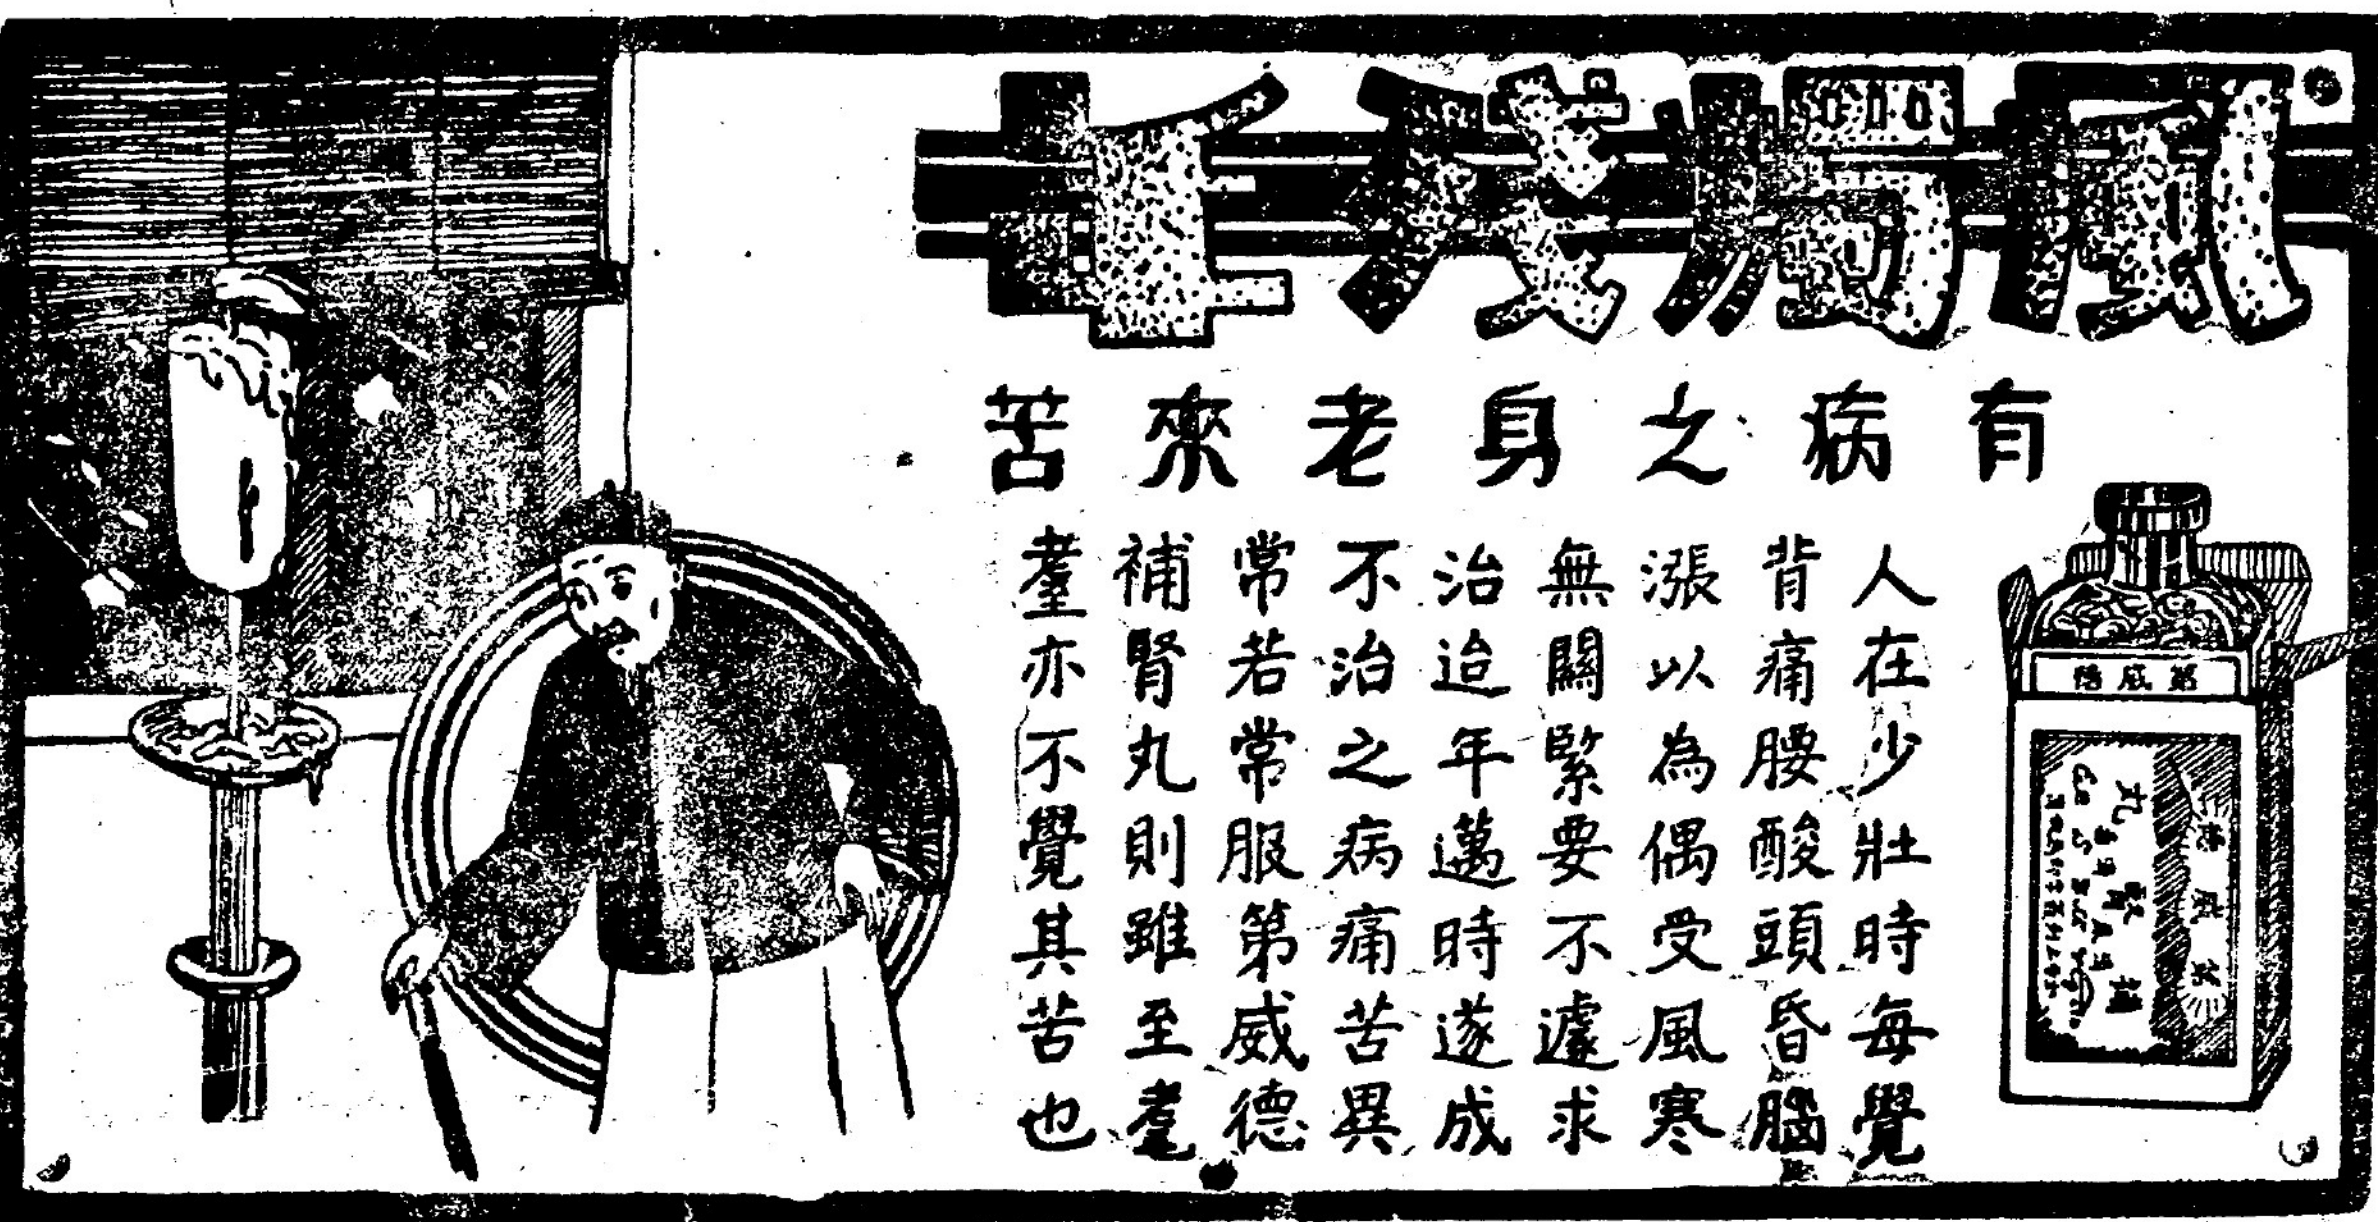 風燭殘年
有病之身老來苦
人在少壯時每覺
背痛腰酸頭昏腦
漲以為偶受風寒
無關緊要不遽求
治迨年邁時遂成
不治之病痛苦異
常若常服第威德
補腎丸則雖至耄
耋亦不覺其苦也
德威第
補
丸